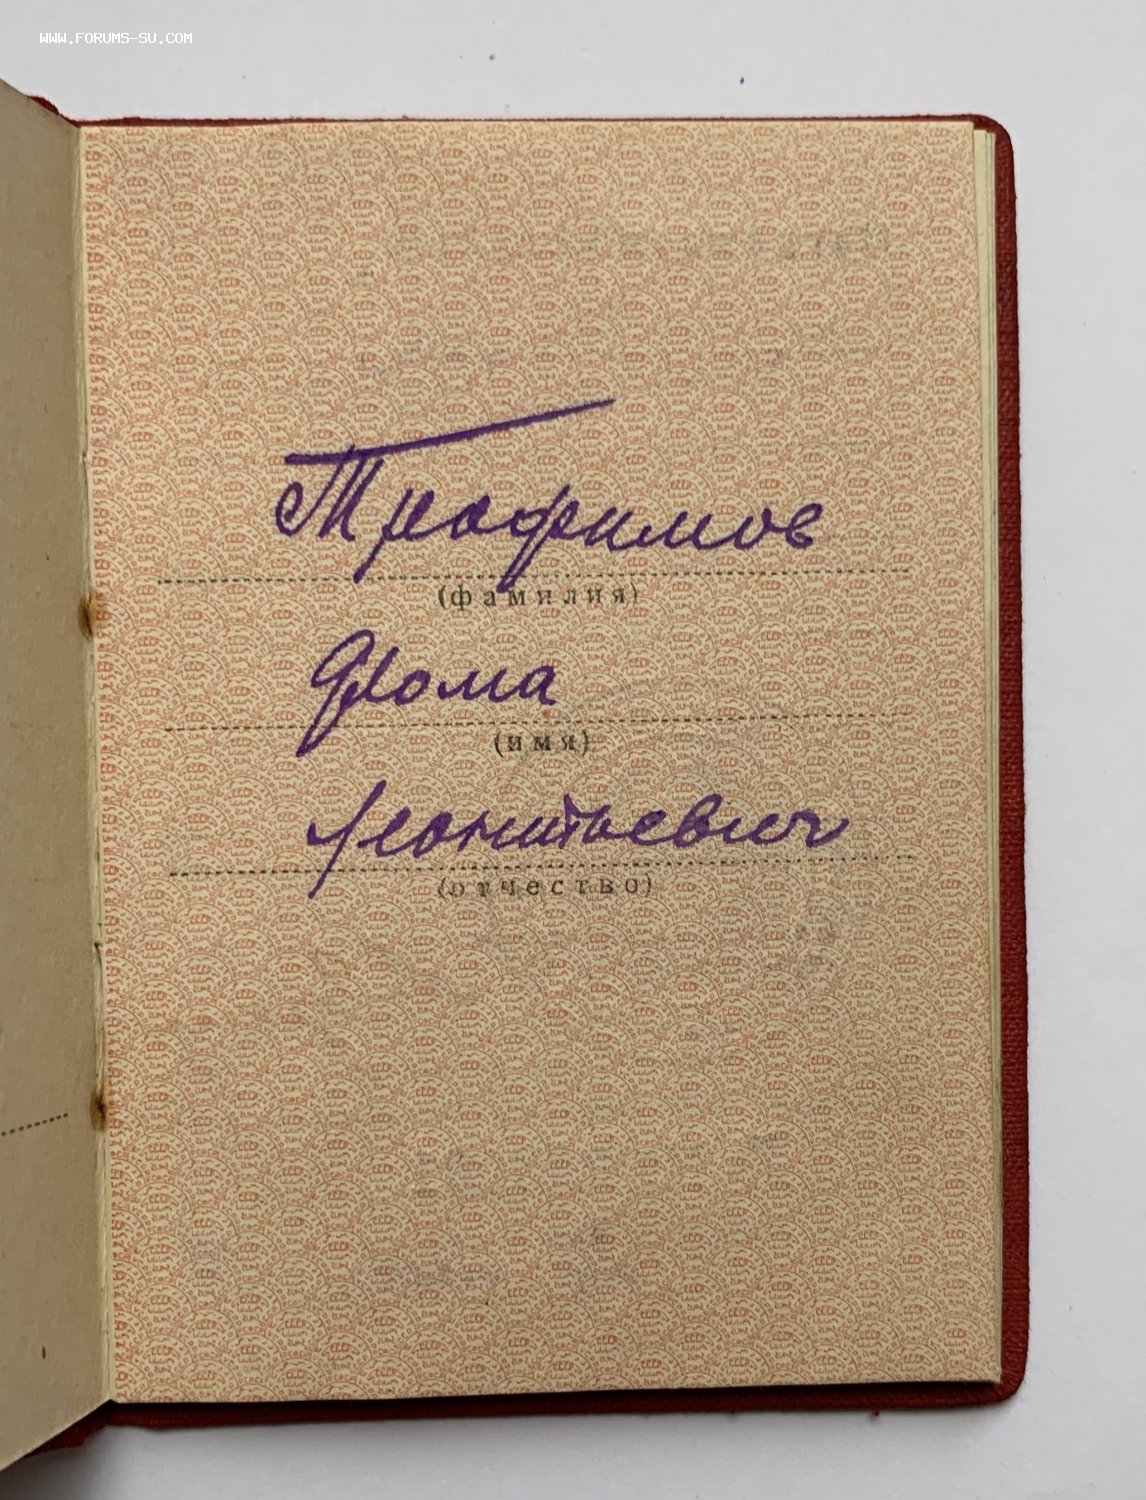 WWW.FORUMS-SU.COM
Трофимов
(фамилия)
Фома
(имя)
Леонтьевич
(отчество)